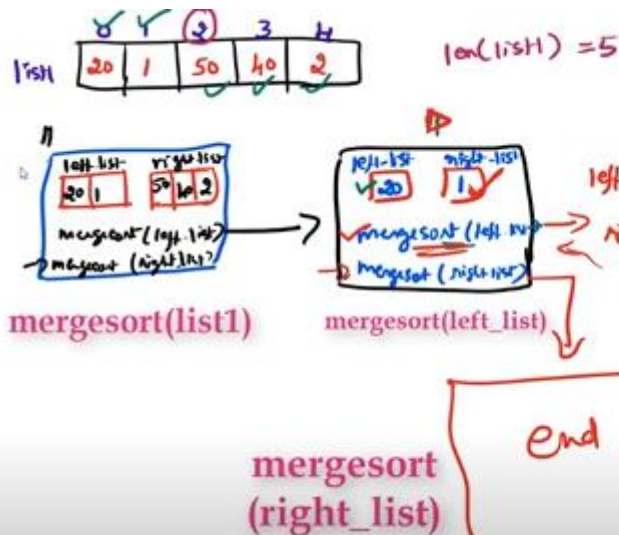 0 1 2 3 4
list1 20 1 50 40 2
len(list1) = 5
left-list right-list
20 1 50 40 2
mergesort(left-list)
mergesort(right-list)
mergesort(list1)
left-list right-list
20 1
mergesort(left
mergesort(right list)
mergesort(left_list)
left
end
mergesort
(right_list)